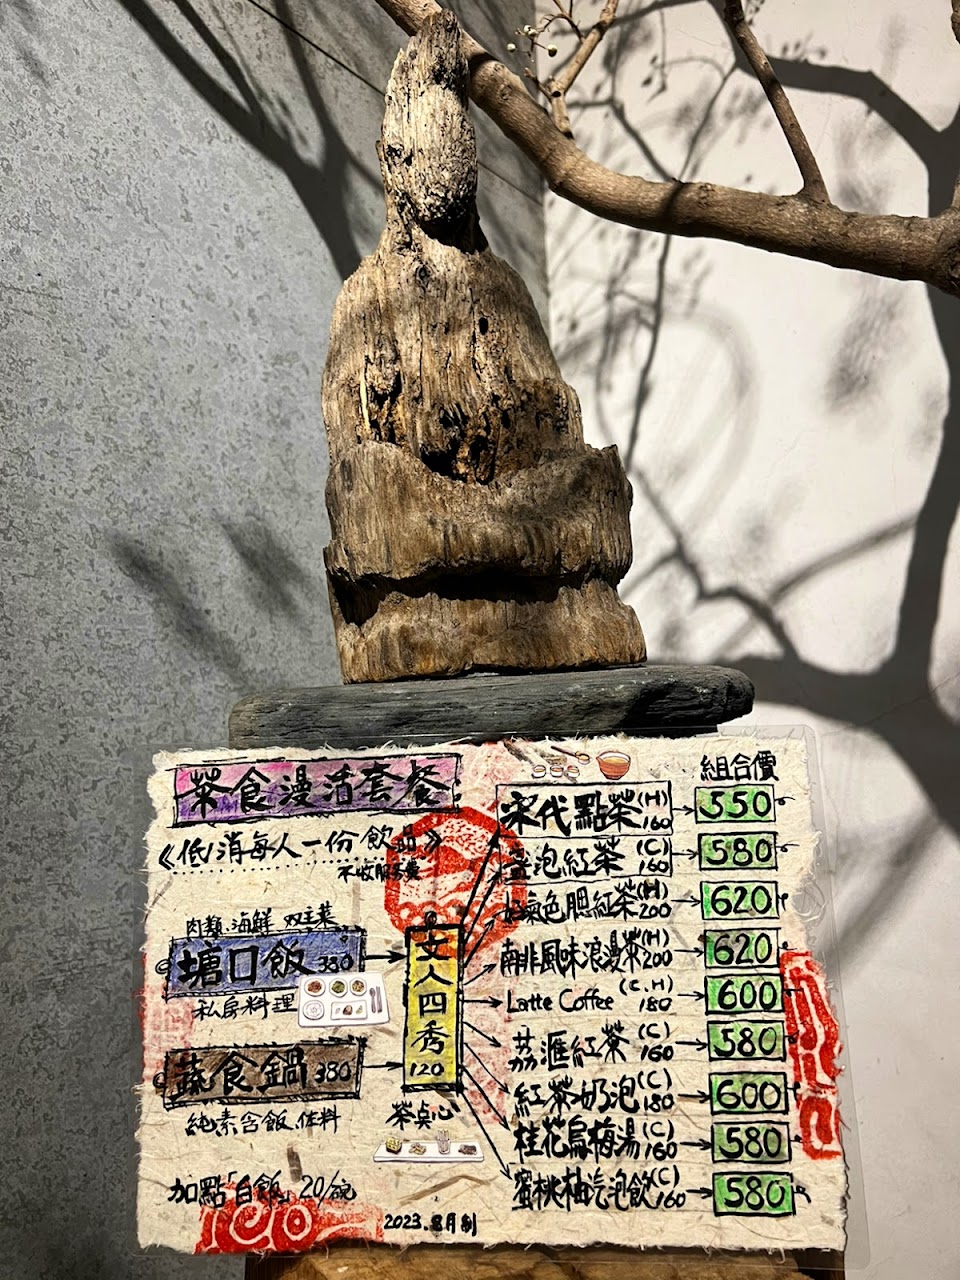 茶食漫活套餐
《低消每人一份飲品》
不收服務費
肉類.海鮮 双主菜
塘口飯 380
私房料理
蔬食鍋 380
純素含飯.佐料
加點「白飯」20/碗
文人四秀
120
茶點心
2023.8月制
組合價
宋代點茶(H) 160 550
泡紅茶(C) 160 580
好氣色腮紅茶(H) 200 620
南非風味浪漫茶(H) 200 620
Latte Coffee (C.H) 180 600
荔滙紅茶(C) 160 580
紅茶奶泡(C) 180 600
桂花烏梅湯(C) 160 580
蜜桃柚汽泡飲(C) 160 580